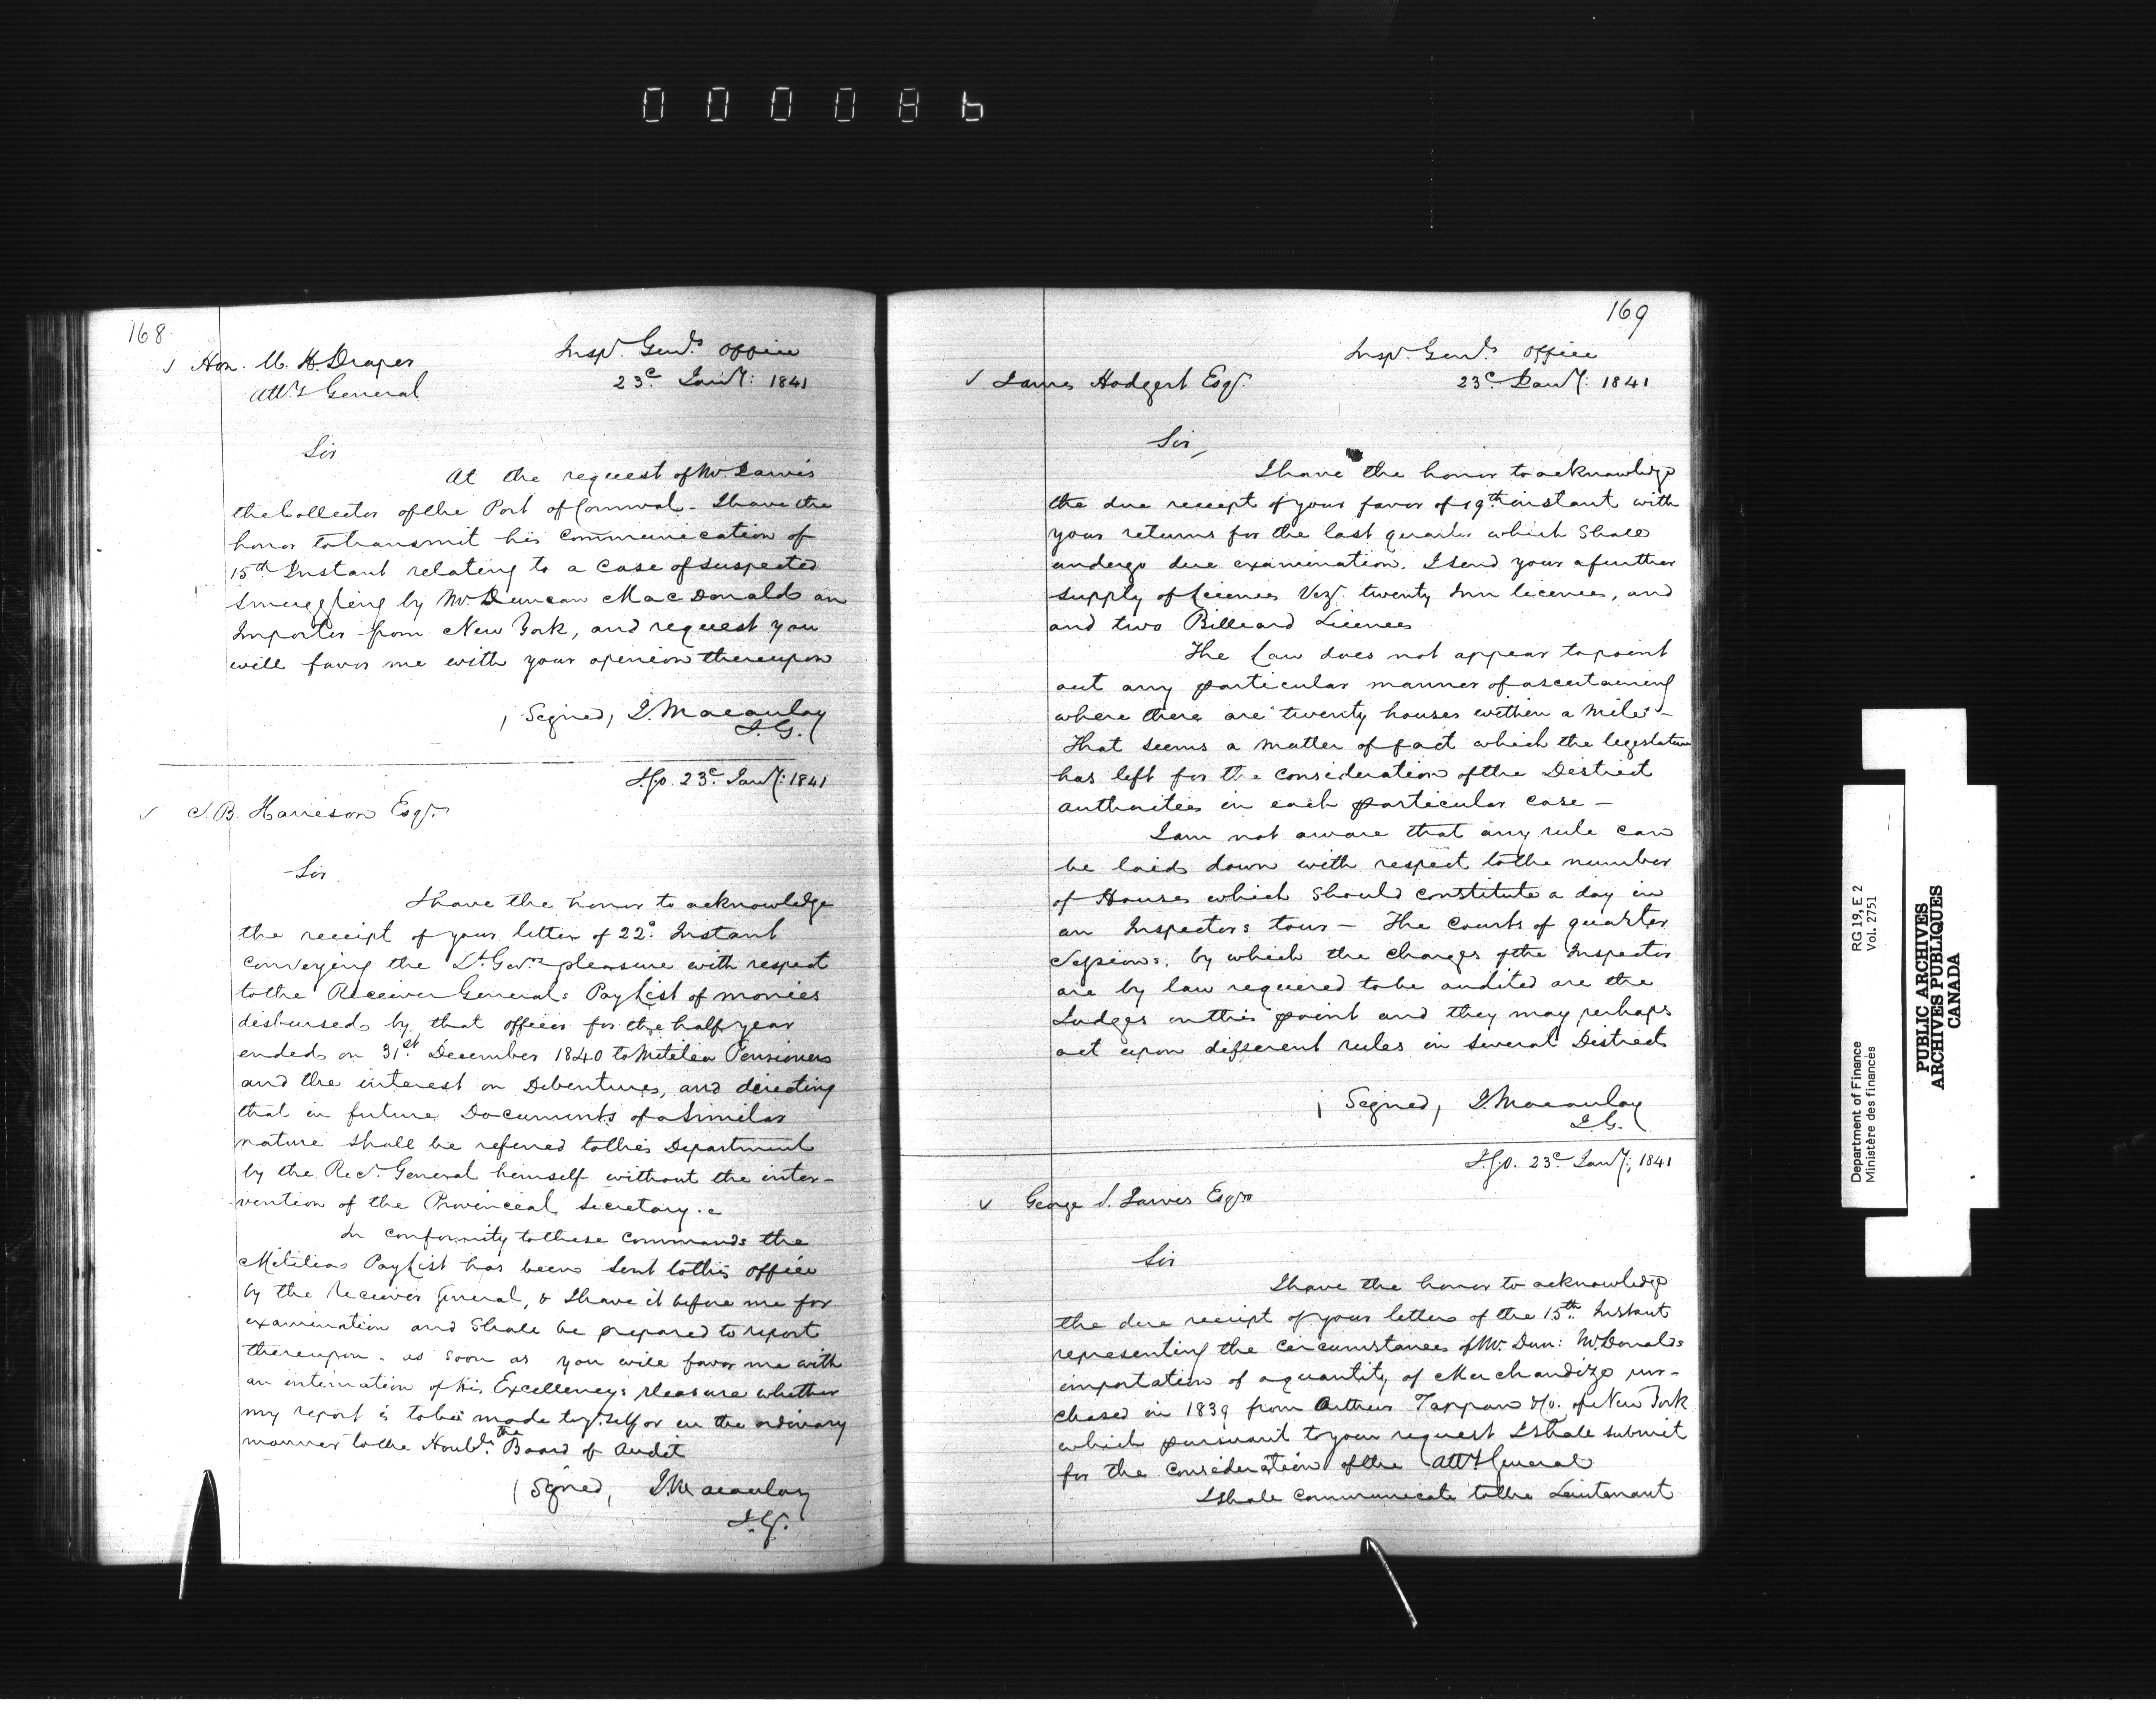 000086
168
Insp.r Genl.s Office
✓ Hon. W. H. Draper
23.d Jan.y: 1841
Att.y General
Sir
At the request of Mr. Jarvis
the Collector of the Port of Cornwal - I have the
honor to transmit his communication of
15th Instant relating to a case of suspected
smuggling by Mr. Duncan MacDonald an
Importer from New York, and request you
will favor me with your opinion thereupon
(Signed) J. Macaulay
I.G.
I.G.O. 23.d Jan.y: 1841
✓ S. B. Harrison Esq.r
Sir
I have the honor to acknowledge
the receipt of your letter of 22.d Instant
conveying the Lt. Gov.rs pleasure with respect
to the Receiver General's Pay List of monies
disbursed by that officer for the half year
ended on 31st December 1840 to Militia Pensioners
and the interest on Debentures, and directing
that in future Documents of a similar
nature shall be referred to this Department
by the Rec.r General himself without the inter-
vention of the Provincial Secretary.
In conformity to these commands the
Militia Pay List has been sent to this office
by the Receiver General, & I have it before me for
examination and shall be prepared to report
thereupon. as soon as you will favor me with
an intimation of His Excellency's pleasure whether
my report is to be made to y.rself or in the ordinary
manner to the Honbl. the Board of Audit
(Signed) J. Macaulay
I.G.
169
Insp.r Genl.s Office
23.d Jan.y: 1841
✓ James Hodgert Esq.r
Sir,
I have the honor to acknowledge
the due receipt of your favor of 19th instant with
your returns for the last quarter which shall
undergo due examination. I send your a further
supply of licences Viz.t twenty Inn licences, and
and two Billiard Licences
The Law does not appear to point
out any particular manner of ascertaining
where there are twenty houses within a mile -
That seems a matter of fact which the legislature
has left for the consideration of the District
authorities in each particular case -
I am not aware that any rule can
be laid down with respect to the number
of Houses which should constitute a day in
an Inspectors tour - The Courts of quarter
Sessions, by which the charges of the Inspector
are by law required to be audited are the
Judges on this point and they may perhaps
act upon different rules in several Districts
(Signed) J. Macaulay
I.G.
I.G.O. 23.d Jan.y; 1841
✓ George S. Jarvis Esq.r
Sir
I have the honor to acknowledge
the due receipt of your letters of the 15th Instant
representing the circumstances of Mr. Dun: McDonalds
importation of a quantity of Merchandize pur-
chased in 1839 from Arthur Tappan & Co. of New York
which pursuant to your request I shall submit
for the consideration of the Att.y General
I shall communicate to the Lieutenant
Department of Finance
Ministère des finances
RG 19, E 2
Vol. 2751
PUBLIC ARCHIVES
ARCHIVES PUBLIQUES
CANADA